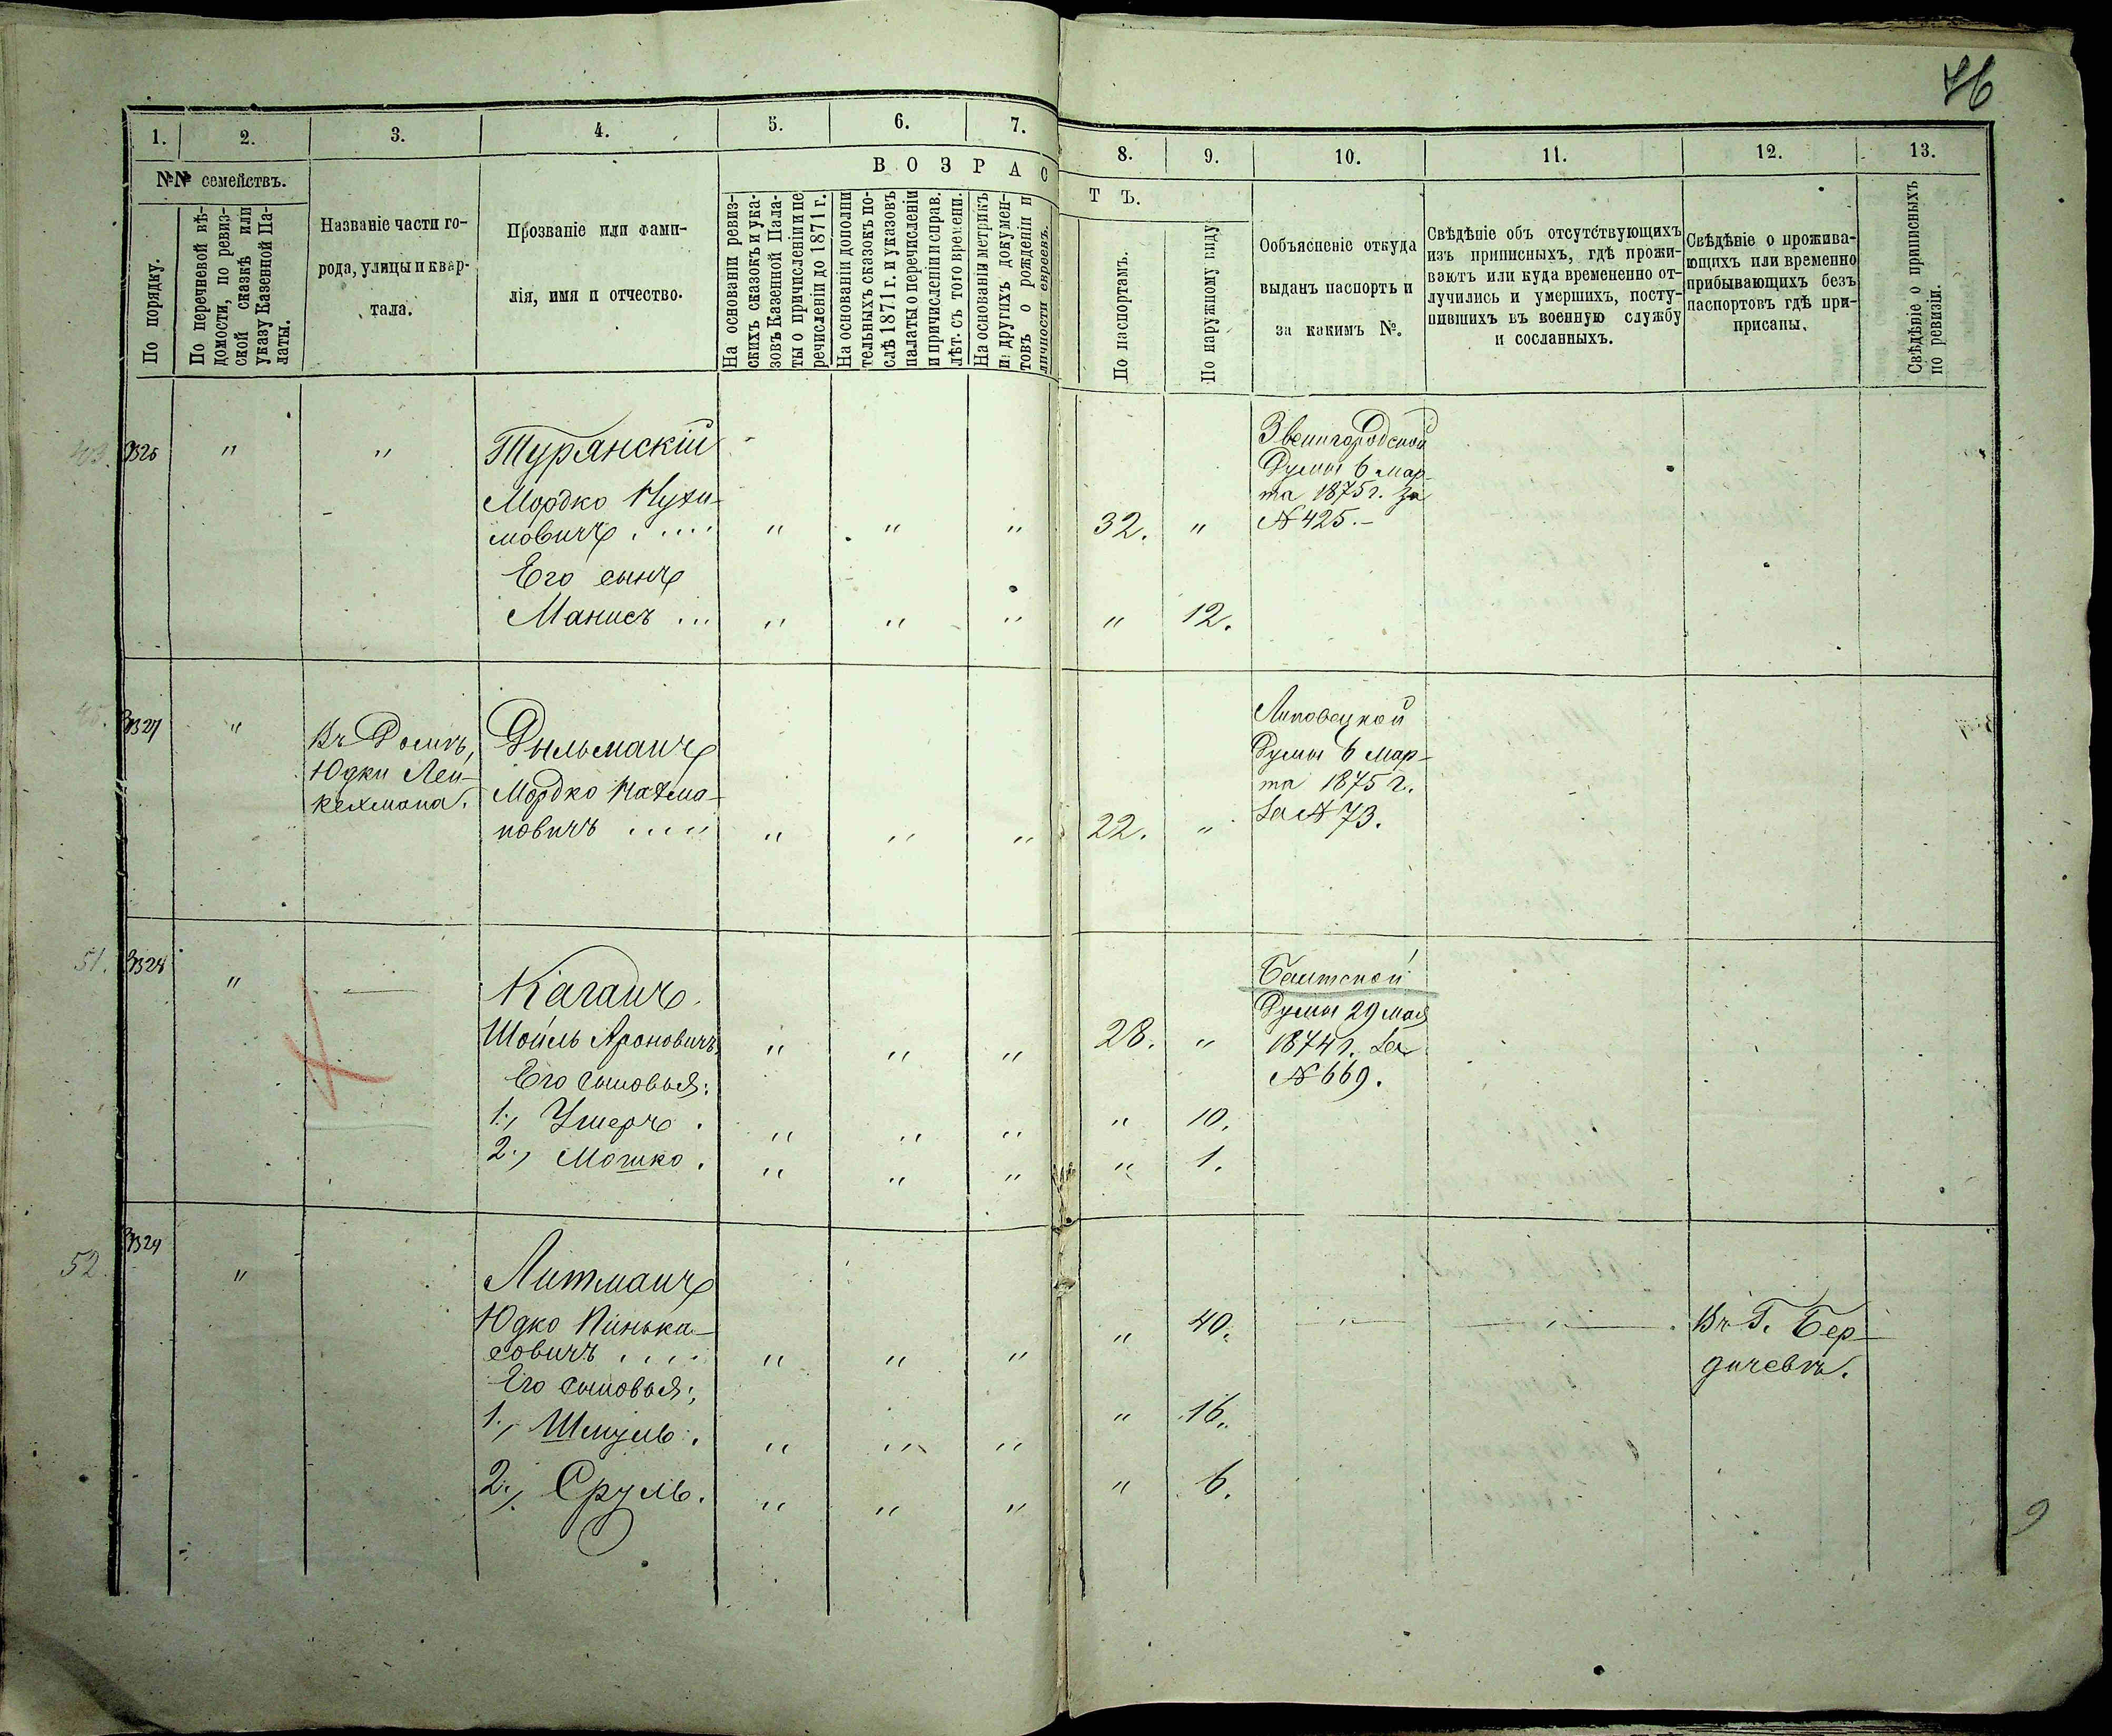 46
1. 2. 3. 4. 5. 6. 7. 8. 9. 10. 11. 12. 13.
№№ семействъ.
По порядку.
По перечневой вѣ-
домости, по ревиз-
ской сказкѣ или
указу Казенной Па-
латы.
Названіе части го-
рода, улицы и квар-
тала.
Прозваніе или фами-
лія, имя и отчество.
ВОЗРАСТЪ.
На основаніи ревиз-
скихъ сказокъ и ука-
зовъ Казенной Пала-
ты о причисленіи и пе
речисленіи до 1871 г.
На основаніи дополни
тельныхъ сказокъ по-
слѣ 1871 г. и указовъ
палаты о перечисленіи
и причисленіи и справ.
лѣт. съ того времени.
На основаніи метрикъ
и другихъ докумен-
товъ о рожденіи и
личности евреевъ.
По паспортамъ.
По наружному виду
Ообъясненіе откуда
выданъ паспортъ и
за какимъ №.
Свѣдѣніе объ отсутствующихъ
изъ приписныхъ, гдѣ прожи-
ваютъ или куда временено от-
лучились и умершихъ, посту-
пившихъ въ военную службу
и сосланныхъ.
Свѣдѣніе о прожива-
ющихъ или временно
прибывающихъ безъ
паспортовъ гдѣ при-
присапы.
Свѣдѣніе о приписныхъ
по ревизіи.
" "
Турянскій
Мордко Нухи-
мовичъ . . . . " " " 32. "
Его сынъ
Манисъ ... " " " " 12.
Звенигородской
Думы 6 Мар-
та 1875 г. за
№ 425.-
"
Въ Домѣ,
Юдки Лей-
кехмана.
Дыльманъ
Мордко Нахма-
новичъ . . . . " " " 22. "
Липовецкой
Думы 6 Мар-
та 1875 г.
за № 73.
51. "
Каганъ
Шойль Ароновичъ " " " 28. "
Его сыновья:
1., Ушеръ . " " " " 10.
2., Мошко . " " " " 1.
Балтской
Думы 29 Мая
1874 г. за
№ 669.
52. "
Литманъ
Юдко Пинька-
совичъ . . . . " " " " 40. " "
Его сыновья:
1., Шмуль . " " " " 16.
2., Сруль. " " " " 6.
Въ Г. Бер-
дичевѣ.
9